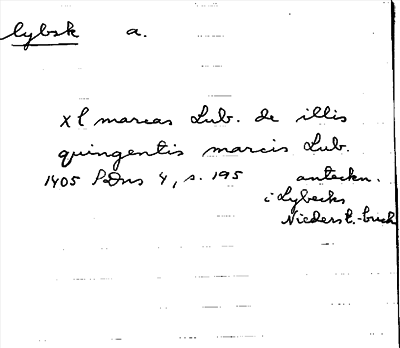 lybsk a.
xl marcas Lub. de illis
quingentis marcis Lub.
1405 SDns 4, s. 195 anteckn.
i Lybecks
Niederst.-buch